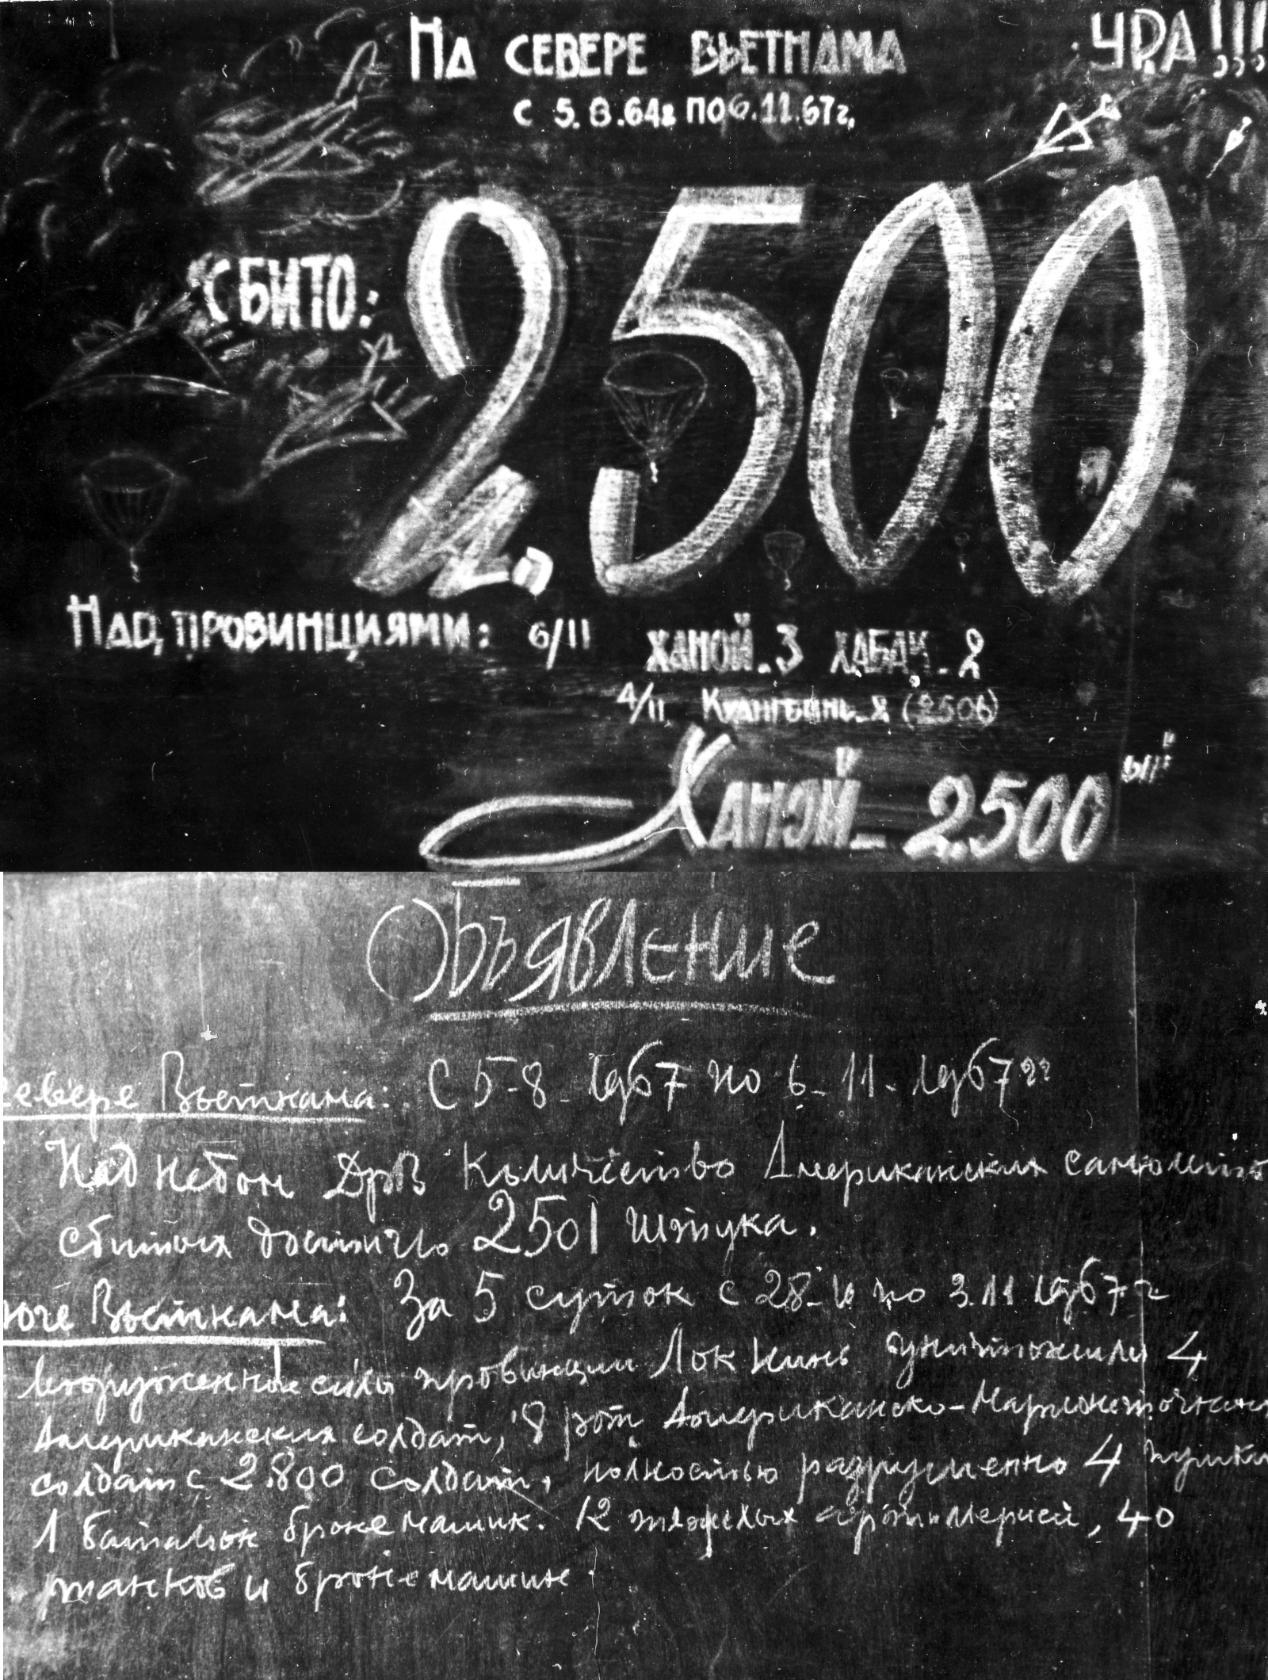 На СЕВЕРЕ ВЬЕТНАМА
УРА!!!
С 5.8.64г ПО 6.11.67г.
СБИТО:
2.500
НАД ПРОВИНЦИЯМИ: 6/11 ХАНОЙ-3 ХАБАК-2
4/11 (2506)
ХАНОЙ-2.500ый
Объявление
севере Вьетнама: С 5-8-1967 по 6-11-1967гг
Над небом ДРВ Количество Американских самолето
сбитых достигло 2501 штука.
юге Вьетнама: За 5 суток с 28- по 3.11 1967г
силы провинции Лок Нинь уничтожили 4
Американских солдат, 8 рот Американско-Марионеточных
солдат с 2.800 солдат, полностью разрушенно 4 пушки
1 батальон бронемашин. 12 тяжелых артиллерией, 40
танков и бронемашин.